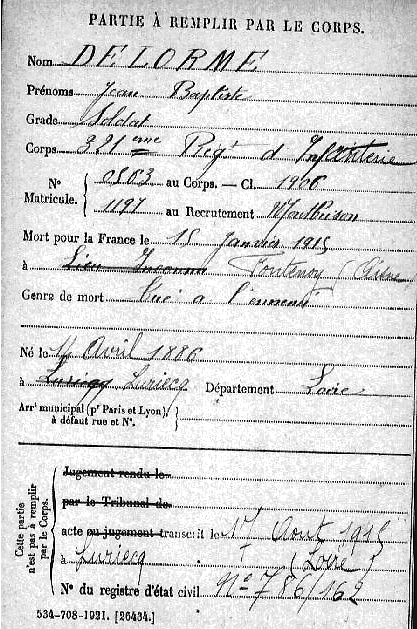 PARTIE À REMPLIR PAR LE CORPS.
Nom DELORME
Prénoms Jean Baptiste
Grade Soldat
Corps 321 eme Regt d Infanterie
N° Matricule. { 0503 au Corps. — Cl. 1906
1197 au Recrutement Montbrison
Mort pour la France le 15 Janvier 1915
à Lieu Inconnu Fontenoy (Aisne
Genre de mort tué à l'ennemi
Né le 11 Avril 1886
à Luriecq Luriecq Département Loire
Arr^t municipal (p^r Paris et Lyon), à défaut rue et N°.
Cette partie n'est pas à remplir par le Corps.
Jugement rendu le
par le Tribunal de
acte ou jugement transcrit le 17 Aout 1915
à Luriecq (Loire)
N° du registre d'état civil N° 786/162
534-708-1921. [26434.]